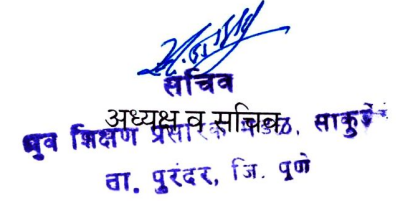 सचिव
अध्यक्ष व सचिव
शिक्षण प्रसारक मंडळ, साकुर्डे
ता. पुरंदर, जि. पुणे